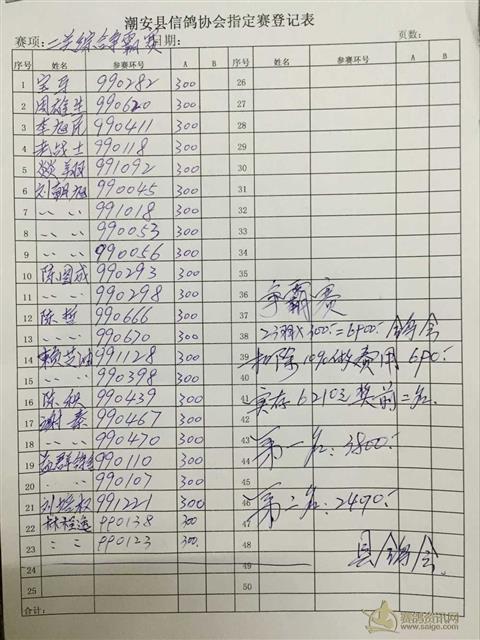 潮安县信鸽协会指定赛登记表
赛项：二关综合争霸赛 日期： 页数：
序号 姓名 参赛环号 A B 序号 姓名 参赛环号 A B
1 990282 300 26
2 周雄生 990620 300 27
3 李旭虎 990411 300 28
4 老战士 990118 300 29
5 翔 991092 300 30
6 刘朝旭 990045 300 31
7 〃 〃 991018 300 32
8 〃 〃 990053 300 33
9 〃 〃 990056 300 34
10 陈图成 990293 300 35
11 〃 〃 990298 300 36
12 陈哲 990666 300 37
13 〃 〃 990670 300 38
14 赖芝油 991128 300 39
15 〃 〃 990398 300 40
16 陈秋 990439 300 41
17 谢豪 990467 300 42
18 〃 〃 990470 300 43
19 益群 990110 300 44
20 〃 〃 990107 300 45
21 刘 权 991221 300 46
22 林 990138 300 47
23 〃 〃 990123 300 48
24 49
25 50
合计：
争霸赛
23羽×300=6900 鸽会
扣除10%做费用690
实存6210元奖前二名
第一名：3800
第二名：2490
县鸽会
赛鸽资讯网
www.saige.com